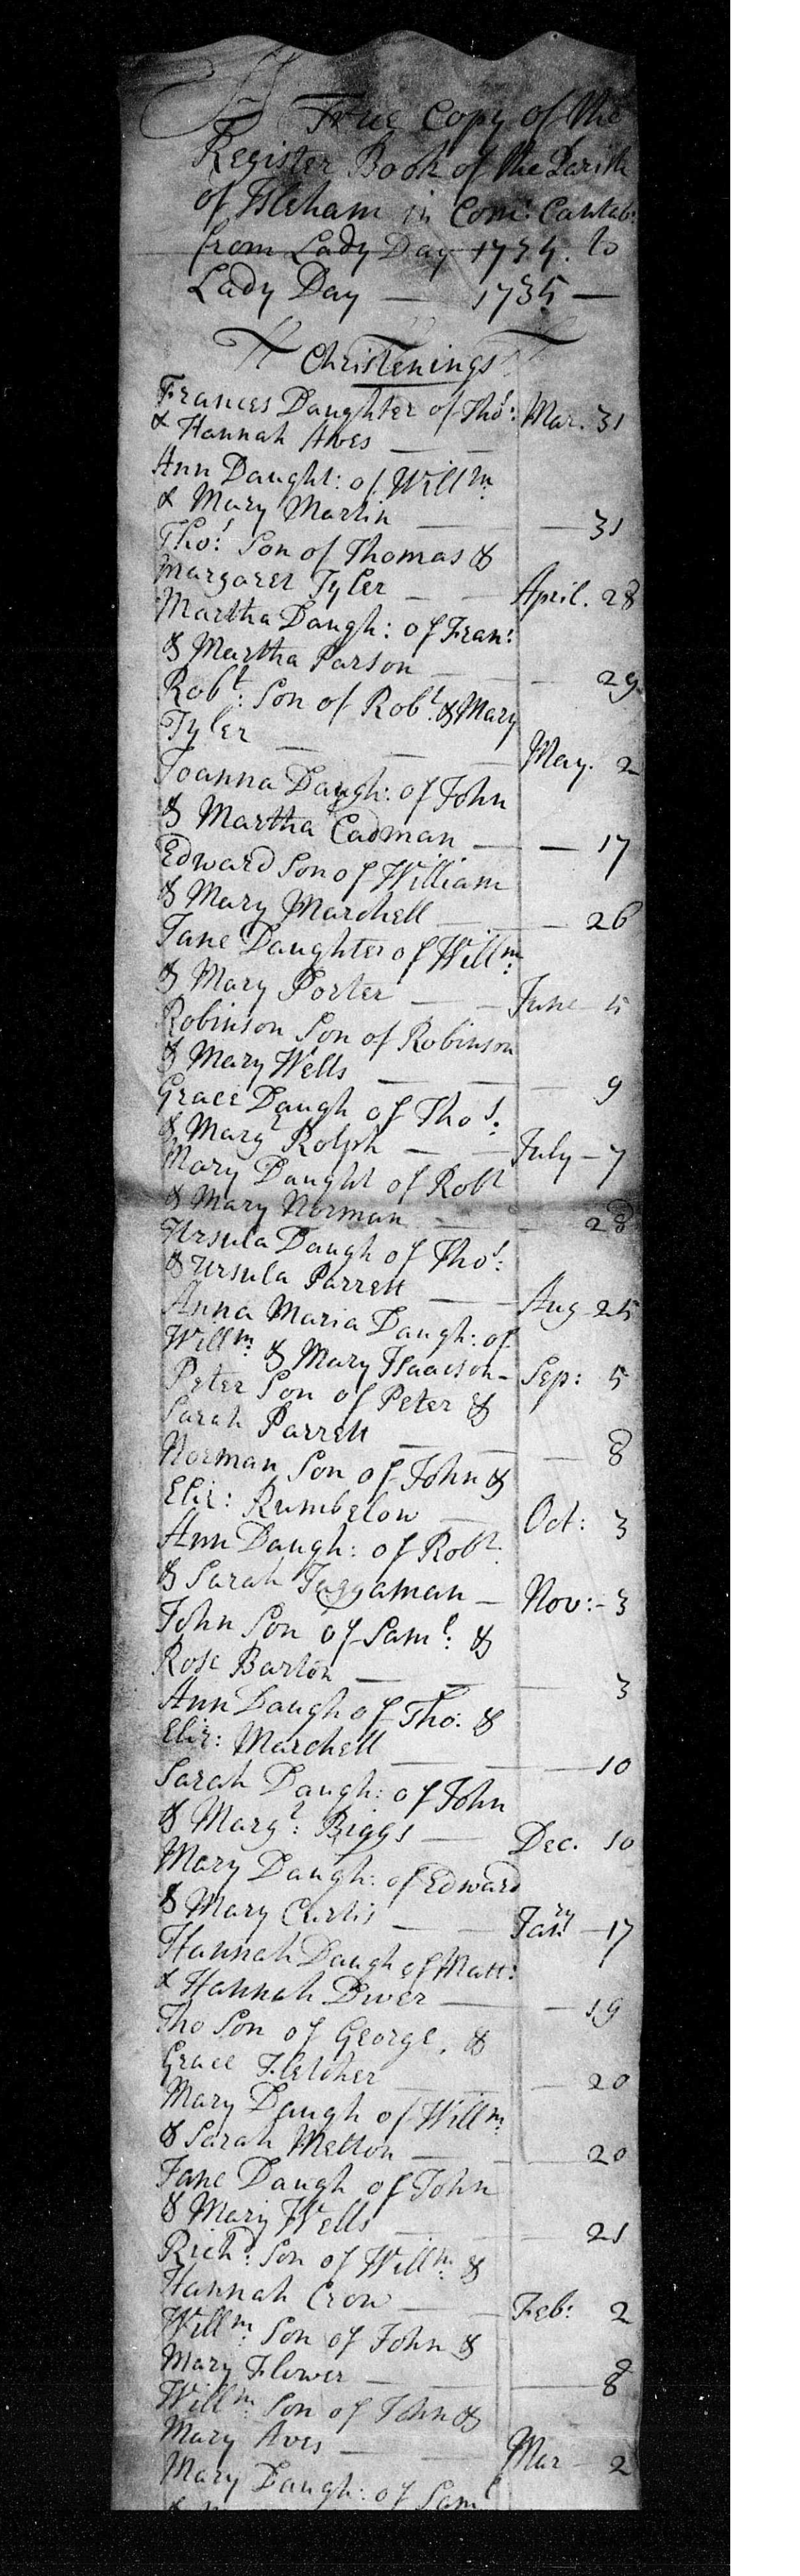 A True Copy of the
Register Book of the Parish
of Isleham in Com: Cantab:
from Lady Day 1734. to
Lady Day — 1735 —
Christenings
Frances Daughter of Tho.s: Mar. 31
& Hannah Aves — —
Ann Daught: of Will.m
& Mary Martin — — 31
Tho.s Son of Thomas &
Margaret Tyler — — April. 28
Martha Daugh: of Fran:
& Martha Parson — — 29
Rob.t: Son of Rob.t & Mary
Tyler — — — May. 2
Joanna Daugh: of John
& Martha Cadman — — 17
Edward Son of William
& Mary Marchell — — 26
Jane Daughter of Will.m:
& Mary Porter — — June 5
Robinson Son of Robinson
& Mary Wells — — — 9
Grace Daugh of Tho.s.
& Marg.t Rolph — — July — 7
Mary Daught of Rob.t
& Mary Norman — — 28
Ursula Daugh of Tho.s:
& Ursula Parrett — — Aug 25
Anna Maria Daugh: of
Will.m: & Mary Isaacson — Sep: 5
Peter Son of Peter &
Sarah Parrett — — — 8
Norman Son of John &
Eliz: Rumbelow — Oct: 3
Ann Daugh: of Rob.t:
& Sarah Taggaman — Nov: - 3
John Son of Sam.l: &
Rose Barton — — — 3
Ann Daugh of Tho: &
Eliz: Marchell — — — 10
Sarah Daugh: of John
& Marg.t: Biggs — Dec. 10
Mary Daugh: of Edward
& Mary Curtis — — Jan.ry — 17
Hannah Daugh of Matt:
& Hannah Diver — — 19
Tho Son of George. &
Grace Fletcher — — — 20
Mary Daugh of Will.m:
& Sarah Melton — — — 20
Jane Daugh of John
& Mary Wells — — — 21
Rich.d: Son of Will.m: &
Hannah Crow — — Feb: 2
Will.m: Son of John &
Mary Flower — — — 8
Will.m: Son of John &
Mary Aves — — Mar — 2
Mary Daugh: of Sam.l